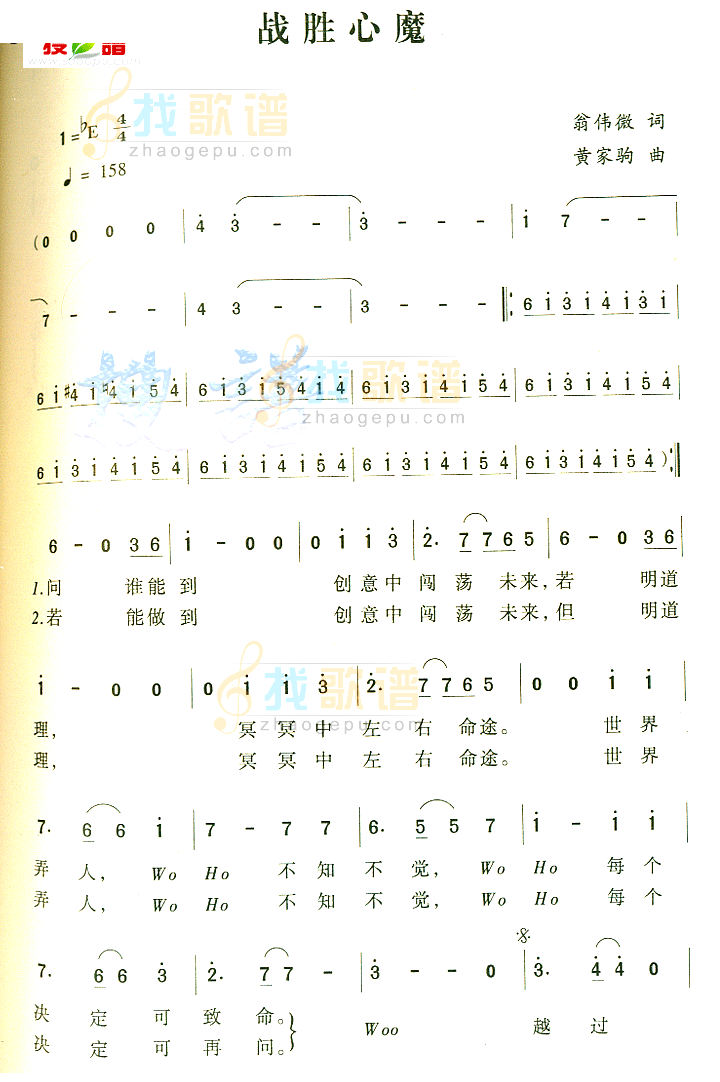 战胜心魔
www.zhaogepu.com
找歌谱
zhaogepu.com
1=♭E 4/4
♩= 158
翁伟微 词
黄家驹 曲
(0 0 0 0 | 4 3 - - | 3 - - - | i 7 - - |
7 - - - | 4 3 - - | 3 - - - |: 6 i 3 i 4 i 3 i |
6 i #4 i #4 i 5 4 | 6 i 3 i 5 4 i 4 | 6 i 3 i 4 i 5 4 | 6 i 3 i 4 i 5 4 |
找歌谱
zhaogepu.com
6 i 3 i 4 i 5 4 | 6 i 3 i 4 i 5 4 | 6 i 3 i 4 i 5 4 | 6 i 3 i 4 i 5 4) :|
6 - 0 3 6 | i - 0 0 | 0 i i 3 | 2. 7 7 6 5 | 6 - 0 3 6 |
1.问 谁能到 创意中 闯荡 未来,若 明道
2.若 能做到 创意中 闯荡 未来,但 明道
找歌谱
zhaogepu.com
i - 0 0 | 0 i i 3 | 2. 7 7 6 5 | 0 0 i i |
理, 冥冥中 左右 命途。 世界
理, 冥冥中 左右 命途。 世界
7. 6 6 i | 7 - 7 7 | 6. 5 5 7 | i - i i |
弄人, Wo Ho 不知不觉, Wo Ho 每个
弄人, Wo Ho 不知不觉, Wo Ho 每个
7. 6 6 3 | 2. 7 7 - | 3 - - 0 | 3. 4 4 0
决定可致命。
决定可再问。} Woo 越过